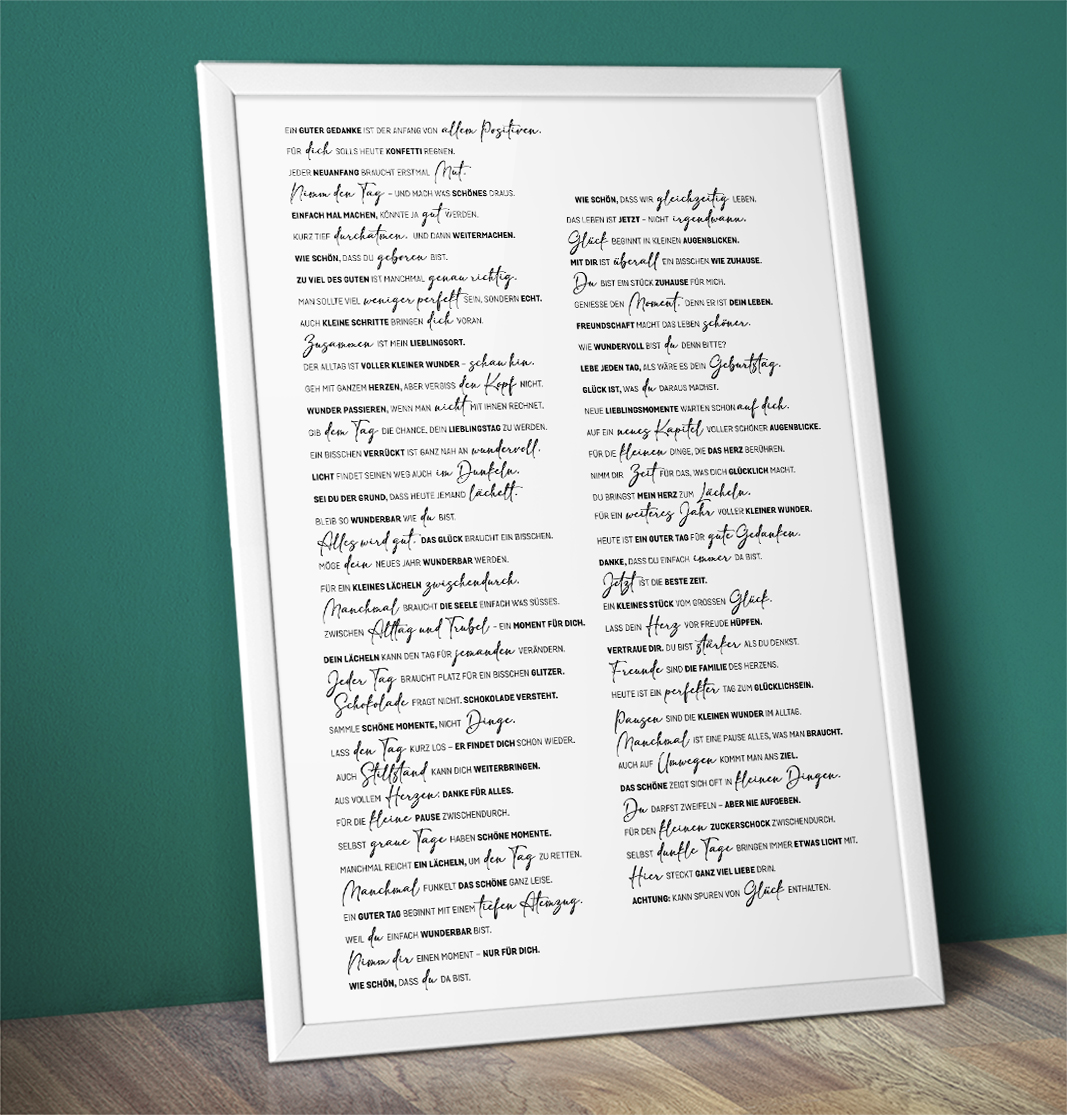 EIN GUTER GEDANKE IST DER ANFANG VON allem Positiven.
FÜR dich SOLLS HEUTE KONFETTI REGNEN.
JEDER NEUANFANG BRAUCHT ERSTMAL Mut.
Nimm den Tag – UND MACH WAS SCHÖNES DRAUS.
EINFACH MAL MACHEN, KÖNNTE JA gut WERDEN.
KURZ TIEF durchatmen. UND DANN WEITERMACHEN.
WIE SCHÖN, DASS DU geboren BIST.
ZU VIEL DES GUTEN IST MANCHMAL genau richtig.
MAN SOLLTE VIEL weniger perfekt SEIN, SONDERN ECHT.
AUCH KLEINE SCHRITTE BRINGEN dich VORAN.
Zusammen IST MEIN LIEBLINGSORT.
DER ALLTAG IST VOLLER KLEINER WUNDER – schau hin.
GEH MIT GANZEM HERZEN, ABER VERGISS den Kopf NICHT.
WUNDER PASSIEREN, WENN MAN nicht MIT IHNEN RECHNET.
GIB dem Tag DIE CHANCE, DEIN LIEBLINGSTAG ZU WERDEN.
EIN BISSCHEN VERRÜCKT IST GANZ NAH AN wundervoll.
LICHT FINDET SEINEN WEG AUCH im Dunkeln.
SEI DU DER GRUND, DASS HEUTE JEMAND lächelt.
BLEIB SO WUNDERBAR WIE du BIST.
Alles wird gut. DAS GLÜCK BRAUCHT EIN BISSCHEN.
MÖGE dein NEUES JAHR WUNDERBAR WERDEN.
FÜR EIN KLEINES LÄCHELN zwischendurch.
Manchmal BRAUCHT DIE SEELE EINFACH WAS SÜSSES.
ZWISCHEN Alltag und Trubel – EIN MOMENT FÜR DICH.
DEIN LÄCHELN KANN DEN TAG FÜR jemanden VERÄNDERN.
Jeder Tag BRAUCHT PLATZ FÜR EIN BISSCHEN GLITZER.
Schokolade FRAGT NICHT. SCHOKOLADE VERSTEHT.
SAMMLE SCHÖNE MOMENTE, NICHT Dinge.
LASS den Tag KURZ LOS – ER FINDET DICH SCHON WIEDER.
AUCH Stillstand KANN DICH WEITERBRINGEN.
AUS VOLLEM Herzen: DANKE FÜR ALLES.
FÜR DIE kleine PAUSE ZWISCHENDURCH.
SELBST graue Tage HABEN SCHÖNE MOMENTE.
MANCHMAL REICHT EIN LÄCHELN, UM den Tag ZU RETTEN.
Manchmal FUNKELT DAS SCHÖNE GANZ LEISE.
EIN GUTER TAG BEGINNT MIT EINEM tiefen Atemzug.
WEIL du EINFACH WUNDERBAR BIST.
Nimm dir EINEN MOMENT – NUR FÜR DICH.
WIE SCHÖN, DASS du DA BIST.
WIE SCHÖN, DASS WIR gleichzeitig LEBEN.
DAS LEBEN IST JETZT – NICHT irgendwann.
Glück BEGINNT IN KLEINEN AUGENBLICKEN.
MIT DIR IST überall EIN BISSCHEN WIE ZUHAUSE.
Du BIST EIN STÜCK ZUHAUSE FÜR MICH.
GENIESSE DEN Moment. DENN ER IST DEIN LEBEN.
FREUNDSCHAFT MACHT DAS LEBEN schöner.
WIE WUNDERVOLL BIST du DENN BITTE?
LEBE JEDEN TAG, ALS WÄRE ES DEIN Geburtstag.
GLÜCK IST, WAS du DARAUS MACHST.
NEUE LIEBLINGSMOMENTE WARTEN SCHON auf dich.
AUF EIN neues Kapitel VOLLER SCHÖNER AUGENBLICKE.
FÜR DIE kleinen DINGE, DIE DAS HERZ BERÜHREN.
NIMM DIR Zeit FÜR DAS, WAS DICH GLÜCKLICH MACHT.
DU BRINGST MEIN HERZ ZUM Lächeln.
FÜR EIN weiteres Jahr VOLLER KLEINER WUNDER.
HEUTE IST EIN GUTER TAG FÜR gute Gedanken.
DANKE, DASS DU EINFACH immer DA BIST.
Jetzt IST DIE BESTE ZEIT.
EIN KLEINES STÜCK VOM GROSSEN Glück.
LASS DEIN Herz VOR FREUDE HÜPFEN.
VERTRAUE DIR. DU BIST stärker ALS DU DENKST.
Freunde SIND DIE FAMILIE DES HERZENS.
HEUTE IST EIN perfekter TAG ZUM GLÜCKLICHSEIN.
Pausen SIND DIE KLEINEN WUNDER IM ALLTAG.
Manchmal IST EINE PAUSE ALLES, WAS MAN BRAUCHT.
AUCH AUF Umwegen KOMMT MAN ANS ZIEL.
DAS SCHÖNE ZEIGT SICH OFT IN kleinen Dingen.
Du DARFST ZWEIFELN – ABER NIE AUFGEBEN.
FÜR DEN kleinen ZUCKERSCHOCK ZWISCHENDURCH.
SELBST dunkle Tage BRINGEN IMMER ETWAS LICHT MIT.
Hier STECKT GANZ VIEL LIEBE DRIN.
ACHTUNG: KANN SPUREN VON Glück ENTHALTEN.